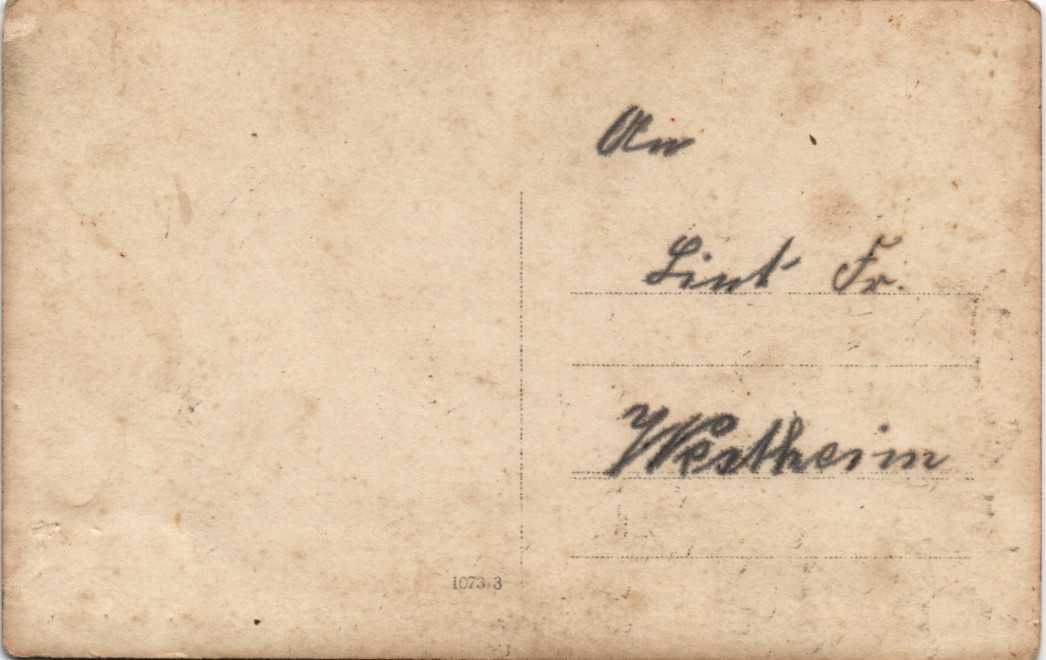 An
Lint Fr.
Westheim
1073/3